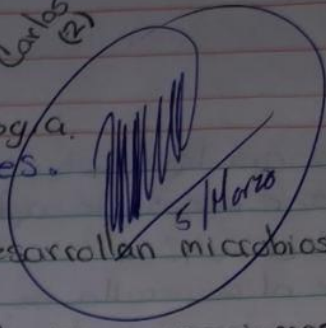 Carlos
(2)
og/a.
es.
5/Marzo
esarrollan microbios